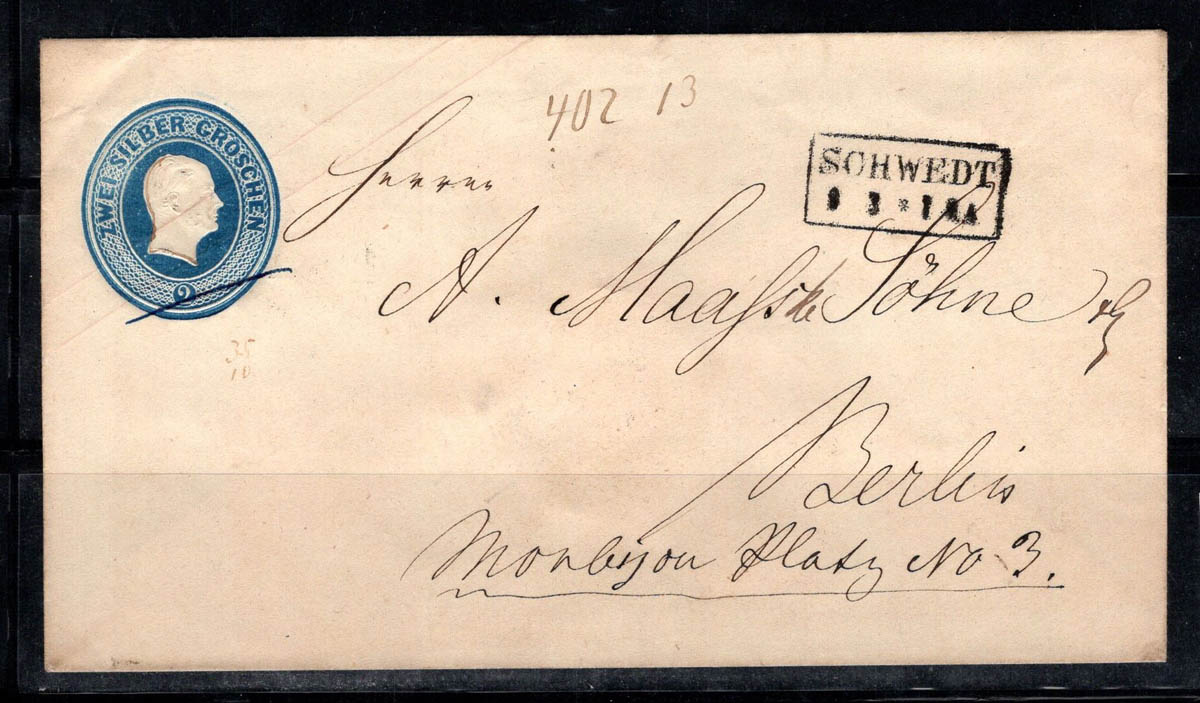 ZWEI SILBER GROSCHEN
2
402 13
SCHWEDT
9 3 * 1
Herren
A. Söhne
35
10
Berlin
Monbijou Platz No 3.